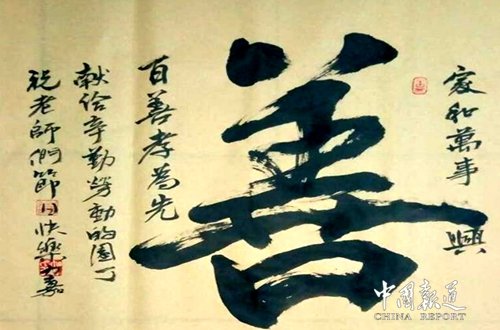 家和萬事興
善
百善孝為先
献给辛勤劳動的園丁
祝老師们節日快樂
中国报道
CHINA REPORT